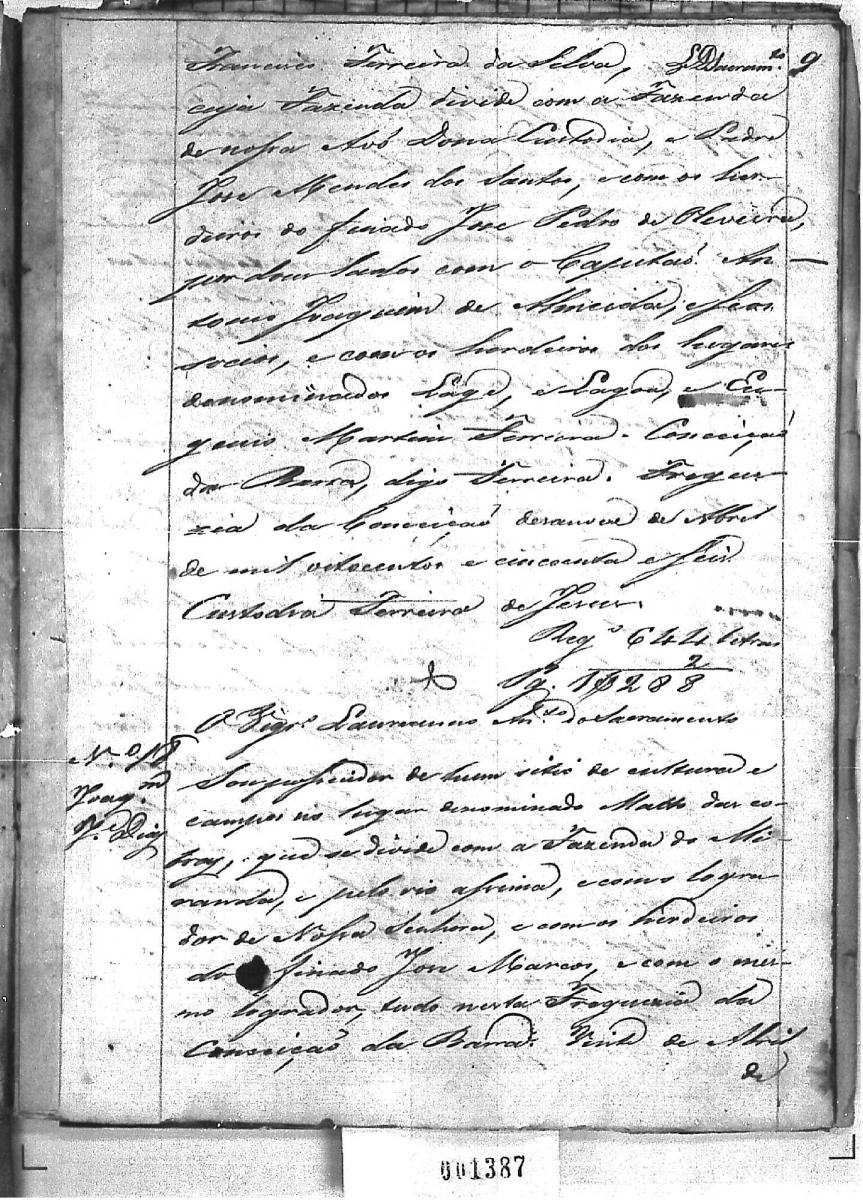 Francisco Ferreira da Silva, LDSacram.to 9
cuja Fazenda divide com a Fazenda
de nossa Avó Dona Custodia, e Padre
Jose Mendes dos Santos, e com os her-
deiros do finado Jose Pedro de Oliveira,
por dous lados com o Capitaõ An-
tonio Joaquim de Almeida, e seus
socios, e com os herdeiros dos lugares
denominados Lage, e Lagoa, e Eu-
genio Martins Ferreira. Conceiçaõ
da Barra, digo Ferreira. Fregue-
zia da Conceiçaõ desanove de Abril
de mil oitocentos e cincoenta e seis.
Custodia Ferreira de Jesus.
Reg.o 644 letras
2
Pg. 1$288
O Vigr.o Laureanno An.to do Sacramento
N.o 18
Joaq.m
Sou possuidor de hum sitio de cultura e
campos no lugar denominado Matto das co-
bras, que se divide com a Fazenda do Mi-
randa, e pelo rio assima, e com o logra-
dor de Nossa Senhora, e com os herdeiros
do finado Jose Marcos, e com o mes-
mo logrador, tudo nesta Freguezia da
Conceiçaõ da Barra. Vinte de Abril
de
001387